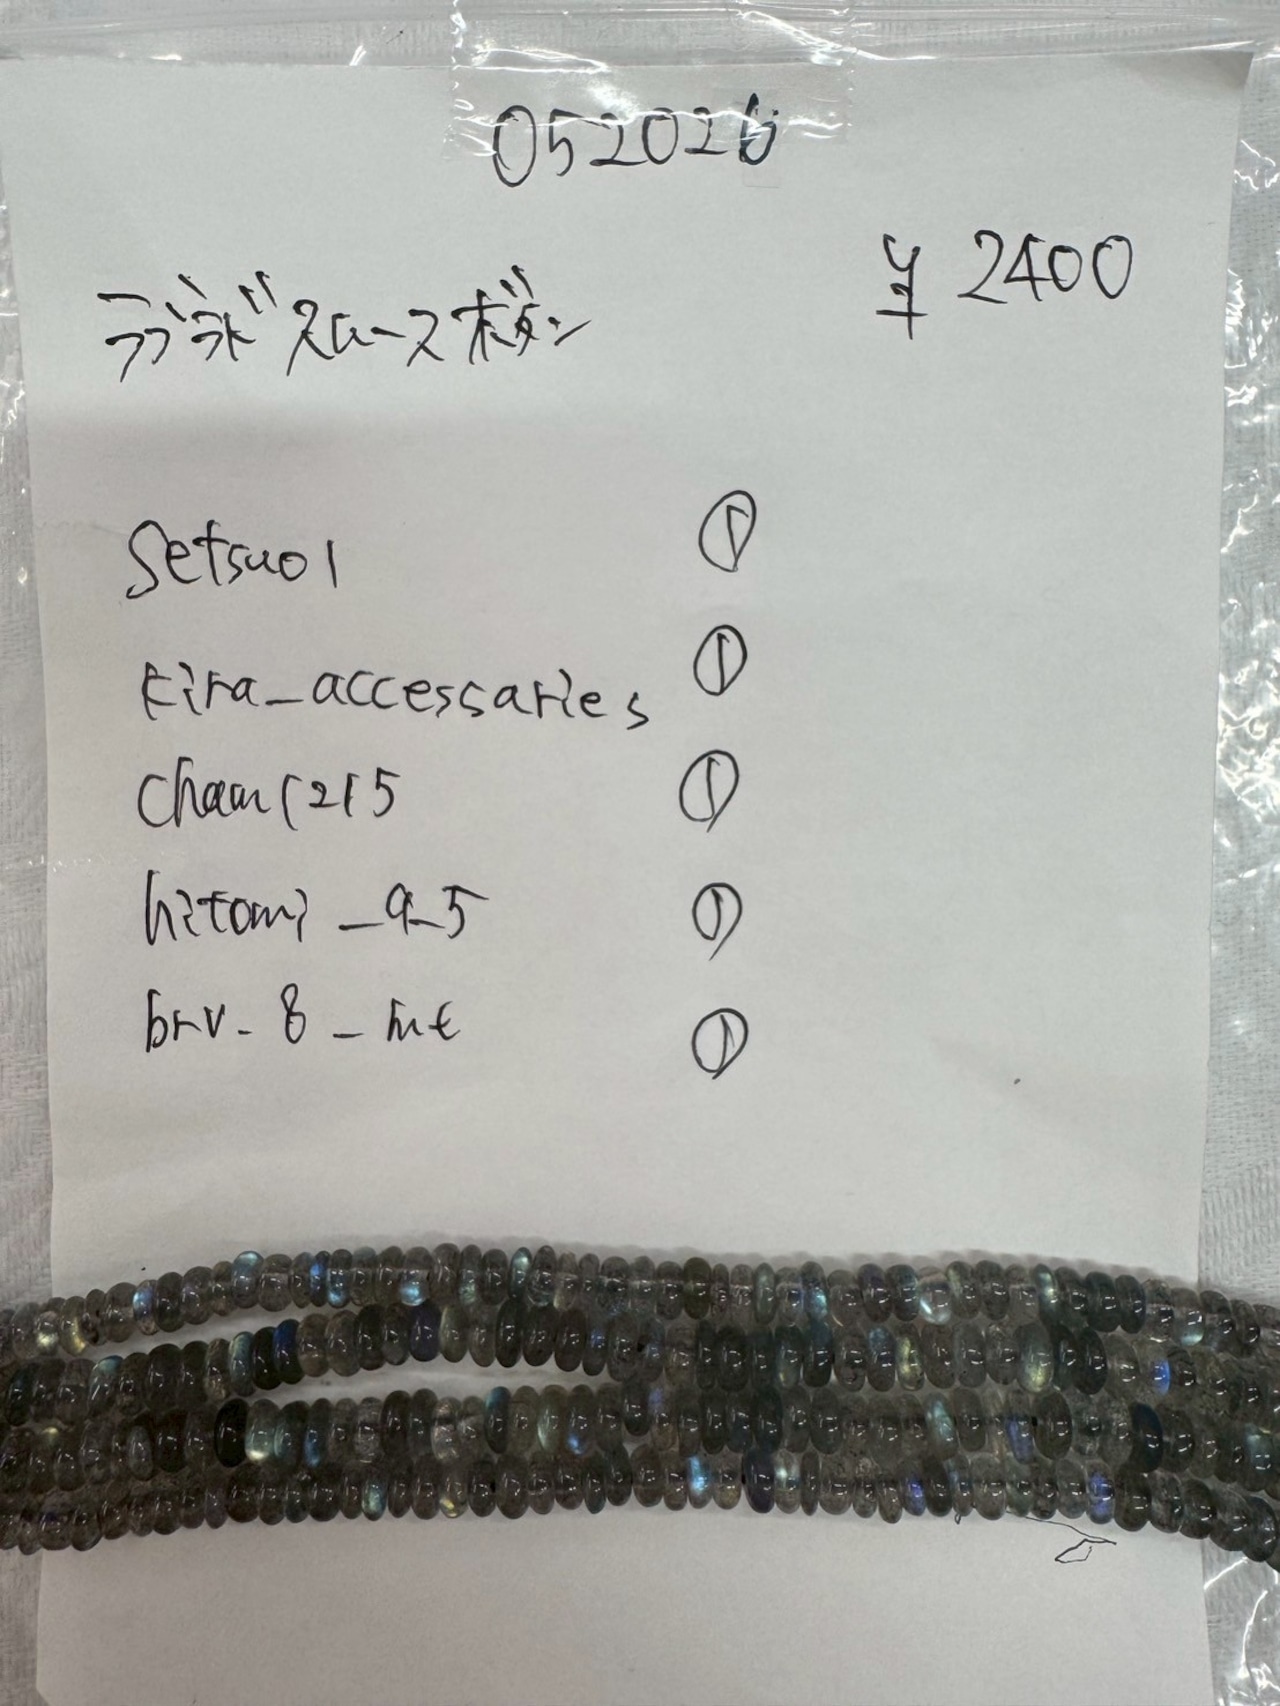 052026
¥2400
ラブラド スムース ボタン
Setsuo1
kira_accessaries
cham1215
hitomi_9_5
brv_8_mt
① 
①
①
①
①